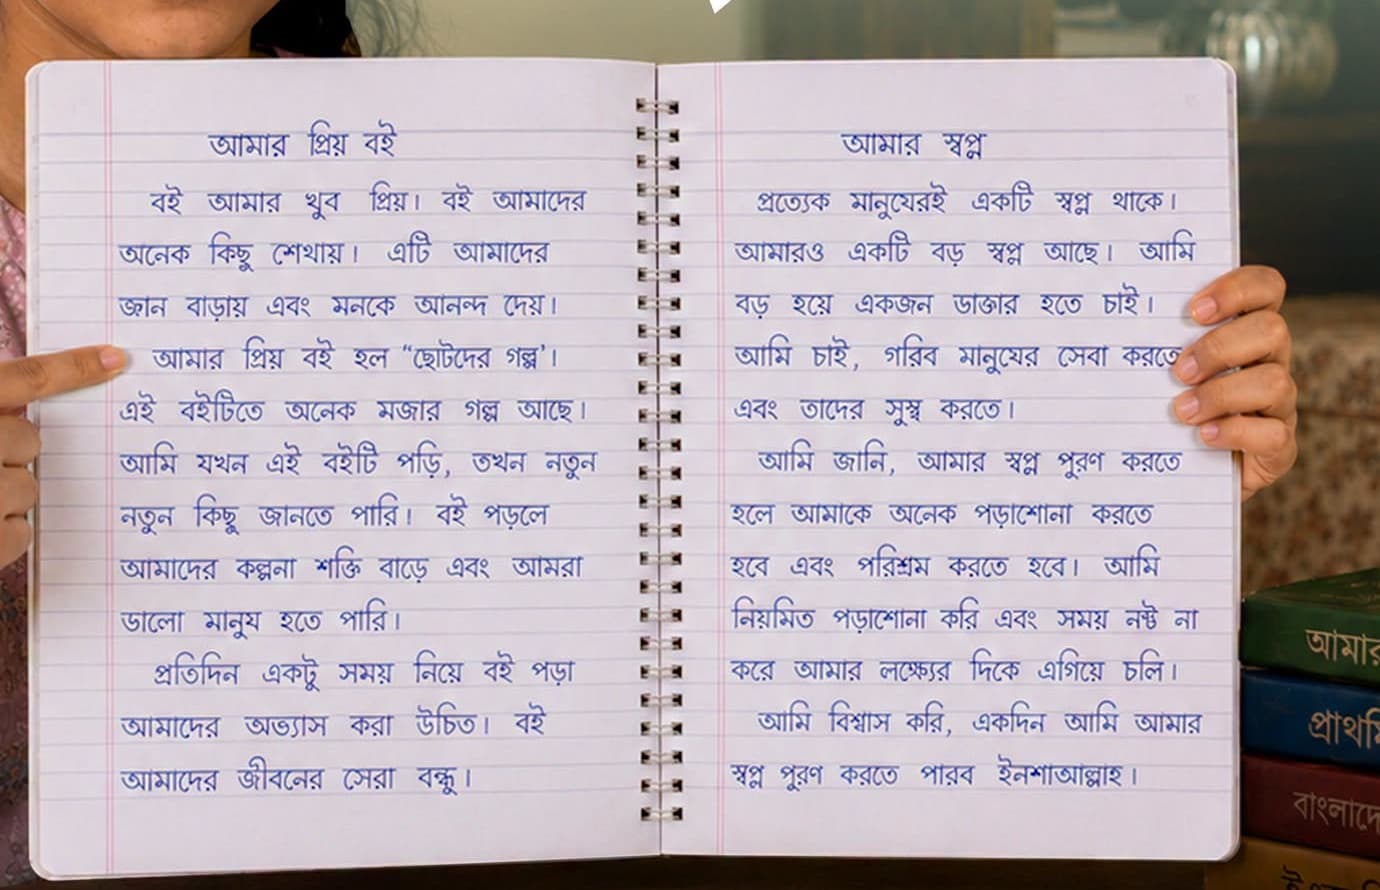 আমার প্রিয় বই
বই আমার খুব প্রিয়। বই আমাদের
অনেক কিছু শেখায়। এটি আমাদের
জ্ঞান বাড়ায় এবং মনকে আনন্দ দেয়।
আমার প্রিয় বই হল “ছোটদের গল্প’।
এই বইটিতে অনেক মজার গল্প আছে।
আমি যখন এই বইটি পড়ি, তখন নতুন
নতুন কিছু জানতে পারি। বই পড়লে
আমাদের কল্পনা শক্তি বাড়ে এবং আমরা
ভালো মানুষ হতে পারি।
প্রতিদিন একটু সময় নিয়ে বই পড়া
আমাদের অভ্যাস করা উচিত। বই
আমাদের জীবনের সেরা বন্ধু।
আমার স্বপ্ন
প্রত্যেক মানুষেরই একটি স্বপ্ন থাকে।
আমারও একটি বড় স্বপ্ন আছে। আমি
বড় হয়ে একজন ডাক্তার হতে চাই।
আমি চাই, গরিব মানুষের সেবা করতে
এবং তাদের সুস্থ করতে।
আমি জানি, আমার স্বপ্ন পুরণ করতে
হলে আমাকে অনেক পড়াশোনা করতে
হবে এবং পরিশ্রম করতে হবে। আমি
নিয়মিত পড়াশোনা করি এবং সময় নষ্ট না
করে আমার লক্ষ্যের দিকে এগিয়ে চলি।
আমি বিশ্বাস করি, একদিন আমি আমার
স্বপ্ন পুরণ করতে পারব ইনশাআল্লাহ।
আমার